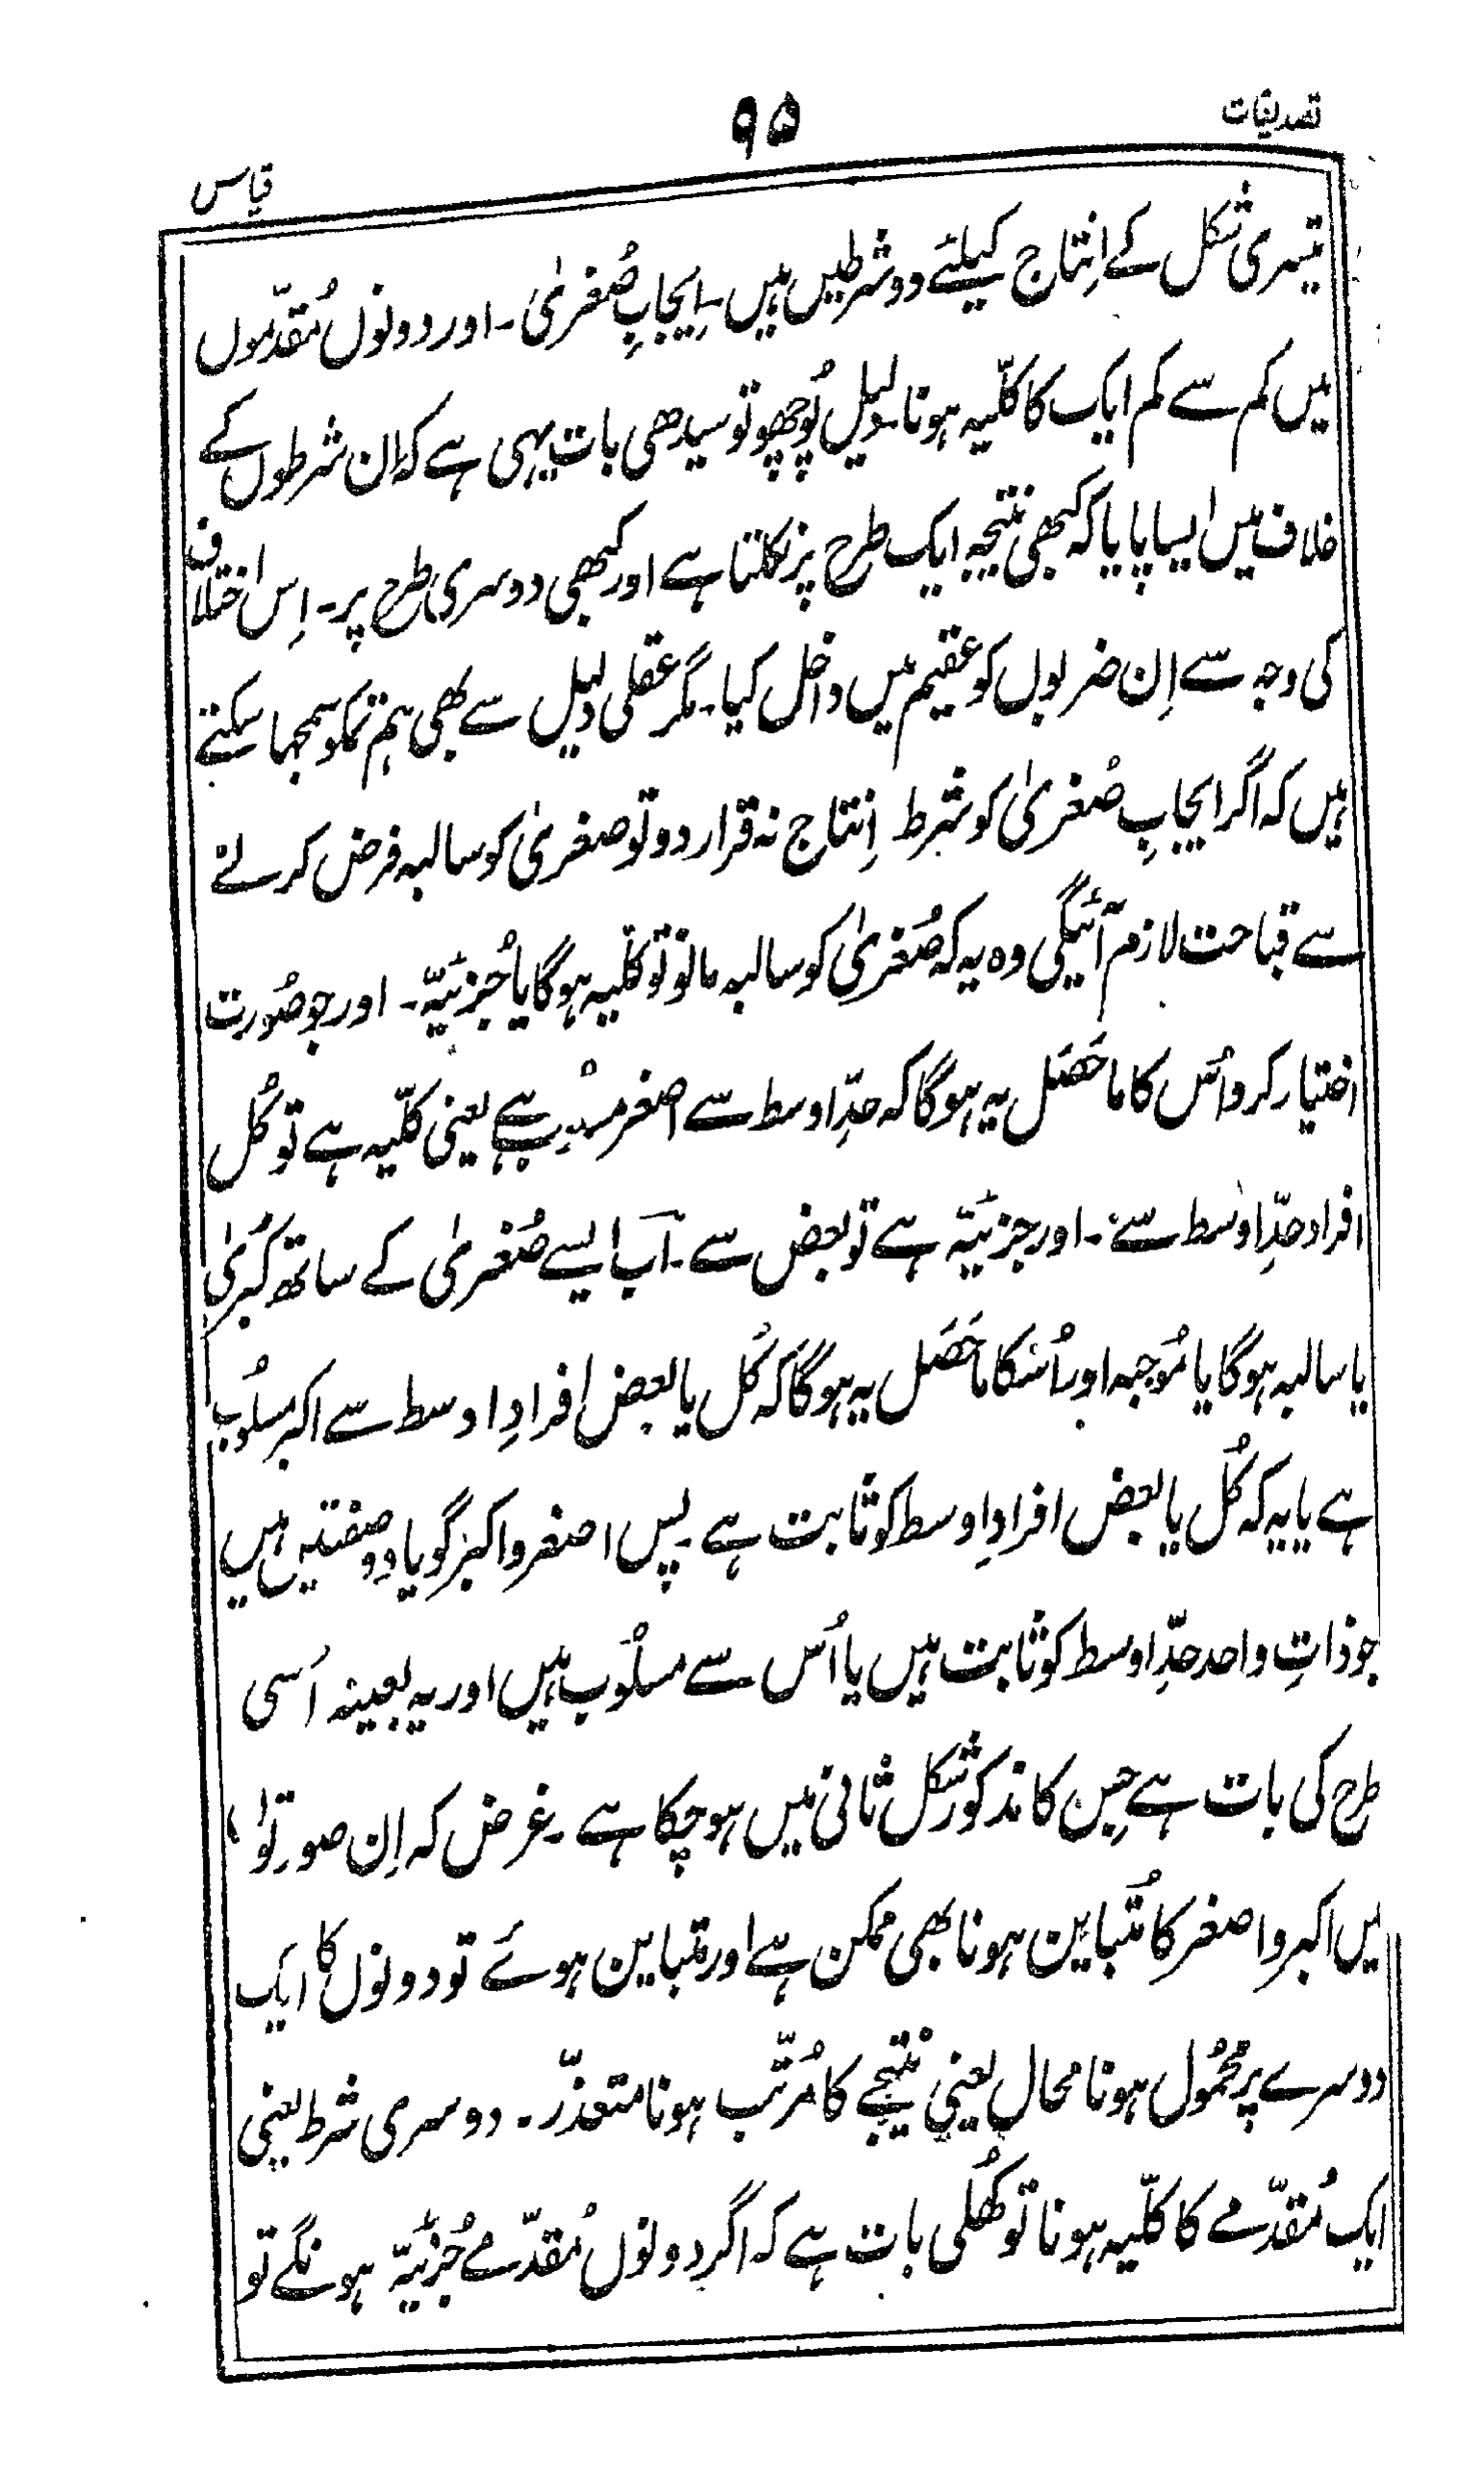 تصدیقات
۹۵
قیاس
تیسری شکل کے اِنتاج کیلئے دو شرطیں ہیں۔ اِیجابِ صُغریٰ۔ اور دونوں مُقدّموں
میں کم سے کم ایک کا کلّیہ ہونا۔ دلیل پُوچھو تو سیدھی بات یہی ہے کہ اِن شرطوں کے
خلاف میں ایسا پایا کہ کبھی نتیجہ ایک طرح پر نکلتا ہے اور کبھی دوسری طرح پر۔ اِس اختلاف
کی وجہ سے اِن ضربوں کو عقیم میں داخل کیا۔ مگر عقلی دلیل سے بھی ہم تمکو سمجھا سکتے
ہیں کہ اگر ایجابِ صُغریٰ کو شرط اِنتاج نہ قرار دو تو صغریٰ کو سالبہ فرض کرنے
سے قباحت لازم آئیگی وہ یہ کہ صُغریٰ کو سالبہ مانو تو کلّیہ ہوگا یا جُزئیّہ۔ اور جو صُورت
اختیار کرو اُس کا ماحَصَل یہ ہوگا کہ حدِّ اوسط سے اصغر مسلُوب ہے یعنی کلّیہ ہے تو کُل
افراد حدِّ اوسط سے۔ اور جزئیّہ ہے تو بعض سے۔ اَب ایسے صُغریٰ کے ساتھ کُبریٰ
یا سالبہ ہوگا یا مُوجبہ اور اُسکا ماحَصَل یہ ہوگا کہ کُل یا بعض افرادِ اوسط سے اکبر مسلُوب
ہے یا یہ کہ کُل یا بعض افرادِ اوسط کو ثابت ہے۔ پس اصغر و اکبر گویا دو صفتیں ہیں
جو ذاتِ واحد حدِّ اوسط کو ثابت ہیں یا اُس سے مسلُوب ہیں اور یہ بعینہ اُسی
طرح کی بات ہے جِس کا مذکور شکل ثانی میں ہوچکا ہے۔ غرض کہ اِن صورتوں
میں اکبر و اصغر کا مُتبایِن ہونا بھی ممکن ہے اور متباین ہوئے تو دونوں کا ایک
دوسرے پر محمُول ہونا محال یعنی نتیجے کا مُرتّب ہونا متعذّر۔ دوسری شرط یعنی
ایک مُقدّمے کا کلّیہ ہونا تو کھُلی بات ہے کہ اگر دونوں مُقدّمے جُزئیّہ ہونگے تو